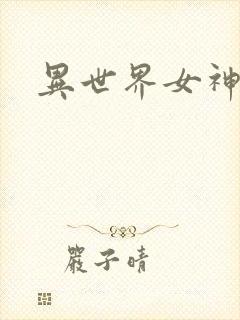 異世界女神
嚴子晴